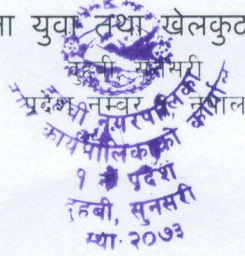 ा युवा तथा खेलकुद
दुहबी, सुनसरी
प्रदेश नम्बर १, नेपाल
दुहबी नगरपालिका
कार्यपालिकाको कार्या
१ नं प्रदेश
दुहबी, सुनसरी
स्था. २०७३